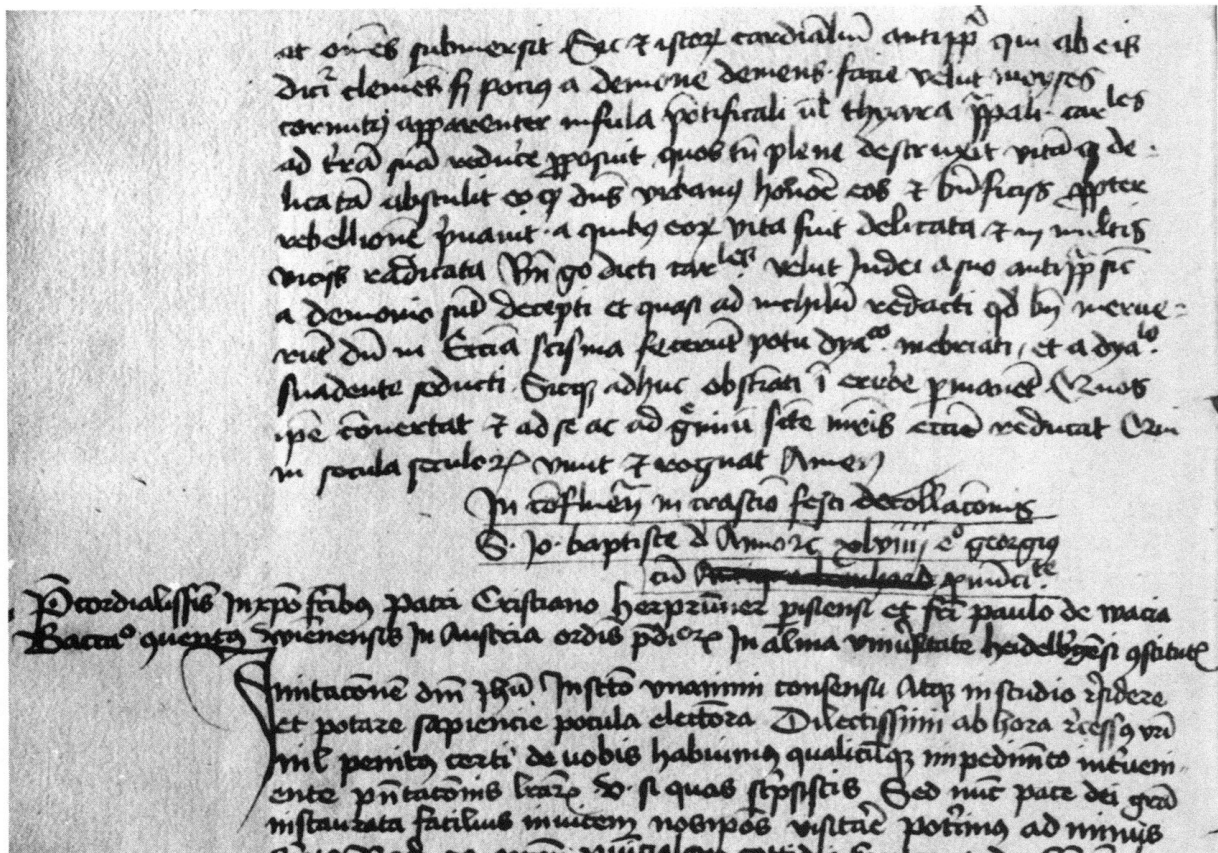 at om̄es submersit Sic ⁊ istoꝝ cardīaliū antipp̄ qui ab eis
dicr̄ clemēs sꝫ pociꝰ a demone demens · facie velut moyses
cornuti apparenter infula pōtificali ūl thyara pp̄ali · carˡᵉˢ
ad tr̄ā suā reduc̄e ꝓposuit quos tn̄ plene destruxit vitā qꝫ de-
licatā abstulit eo ꝙ dn̄s vrbanꝰ hōrē eos ⁊ bn̄ficijs ꝓpter
rebellionē p̄uauit · a quibꝰ eoꝝ vita fuit delicata ⁊ in multis
vicijs radicata Bn̄ gͦ dicti carˡᵉˢ · velut Judei a suo antipp̄ sic
a demonio sūt decepti et quasi ad nichilū redacti qd̄ bn̄ merue-
rūt dū in Ecc̄ia scisma fecerūt potu dyaᶜᵒ · inebriati, et a dyaˡᵒ ·
suadente seducti · Sicqꝫ adhuc obstīati ī erro̅e ꝑmanēt Quos
ip̄e cōuertat ⁊ ad se ac ad gr̄miū sc̄te mr̄is ecc̄ie reducat Qui
in secula seculoꝝ viuit ⁊ regnat Amen
In cōfluen̄ in crastīo festi decollac̄onis
S. Jo. baptiste georgiꝰ
cū
cordialissis in xp̄o fr̄ibꝰ Patri Cristiano herprūner pisiensi et fr̄i paulo de wacia
Baccaͦ wiēnensis In Austria ordīs p̄dicꝝ In alma vniūsitate heidelb̄gēsi ꝯstitutꝭ
Imitac̄onē dn̄i Jhū vnanimi consensu Atqꝫ in studio r̄sidere
et potare sapiencie pocula electiora Dilectissimi ab hora r̄cessꝰ vr̄i
nil penitꝰ certi de uobis habuimꝰ qualicūqꝫ impedimēto int̄ueni-
ente pn̄tac̄onis lr̄aꝝ v̊ · si quas sc̄psistis Sed nūc pace dei gr̄a
instaurata facilius inuicem nosip̄os visitār̄ pot̄imus ad minus